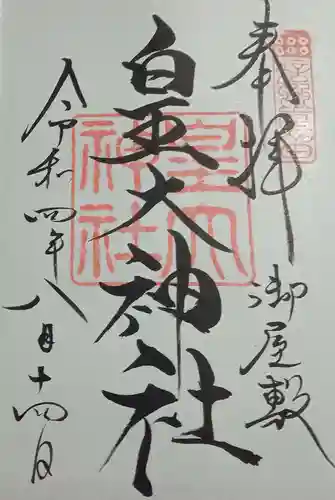 奉拝
御屋敷
皇大神社
令和四年八月十四日
皇大
神社